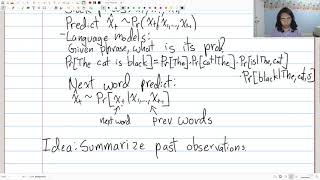 Predict x_t ~ Pr(x_t|x_1,...,x_t-1)
-Language models:
Given phrase, what is its prob
Pr[The cat is black]=Pr[The]·Pr[cat|The]·Pr[is|The,cat]
·Pr[black|The,cat,is]
Next word predict:
x_t ~ Pr[x_t|x_1,...,x_t-1]
next word prev words
Idea: Summarize past observations